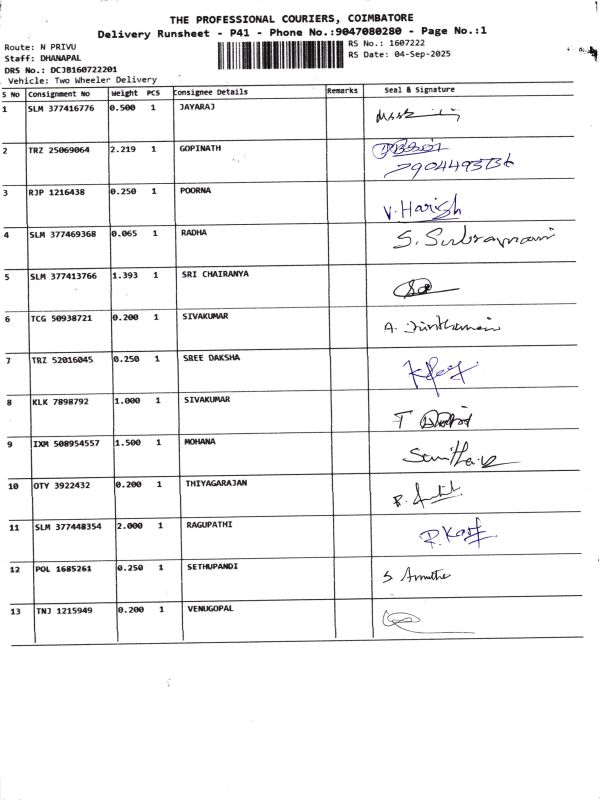 THE PROFESSIONAL COURIERS, COIMBATORE
Delivery Runsheet - P41 - Phone No.:9047080280 - Page No.:1
Route: N PRIVU
RS No.: 1607222
Staff: DHANAPAL
RS Date: 04-Sep-2025
DRS No.: DCJB160722201
Vehicle: Two Wheeler Delivery
S No Consignment No Weight PCS Consignee Details Remarks Seal & Signature
1 SLM 377416776 0.500 1 JAYARAJ
2 TRZ 25069064 2.219 1 GOPINATH
7904495136
3 RJP 1216438 0.250 1 POORNA
V. Harish
4 SLM 377469368 0.065 1 RADHA
S. Subramani
5 SLM 377413766 1.393 1 SRI CHAIRANYA
6 TCG 50938721 0.200 1 SIVAKUMAR
A.
7 TRZ 52016045 0.250 1 SREE DAKSHA
8 KLK 7898792 1.000 1 SIVAKUMAR
T
9 IXM 508954557 1.500 1 MOHANA
10 OTY 3922432 0.200 1 THIYAGARAJAN
11 SLM 377448354 2.000 1 RAGUPATHI
12 POL 1685261 0.250 1 SETHUPANDI
S Amutha
13 TNJ 1215949 0.200 1 VENUGOPAL